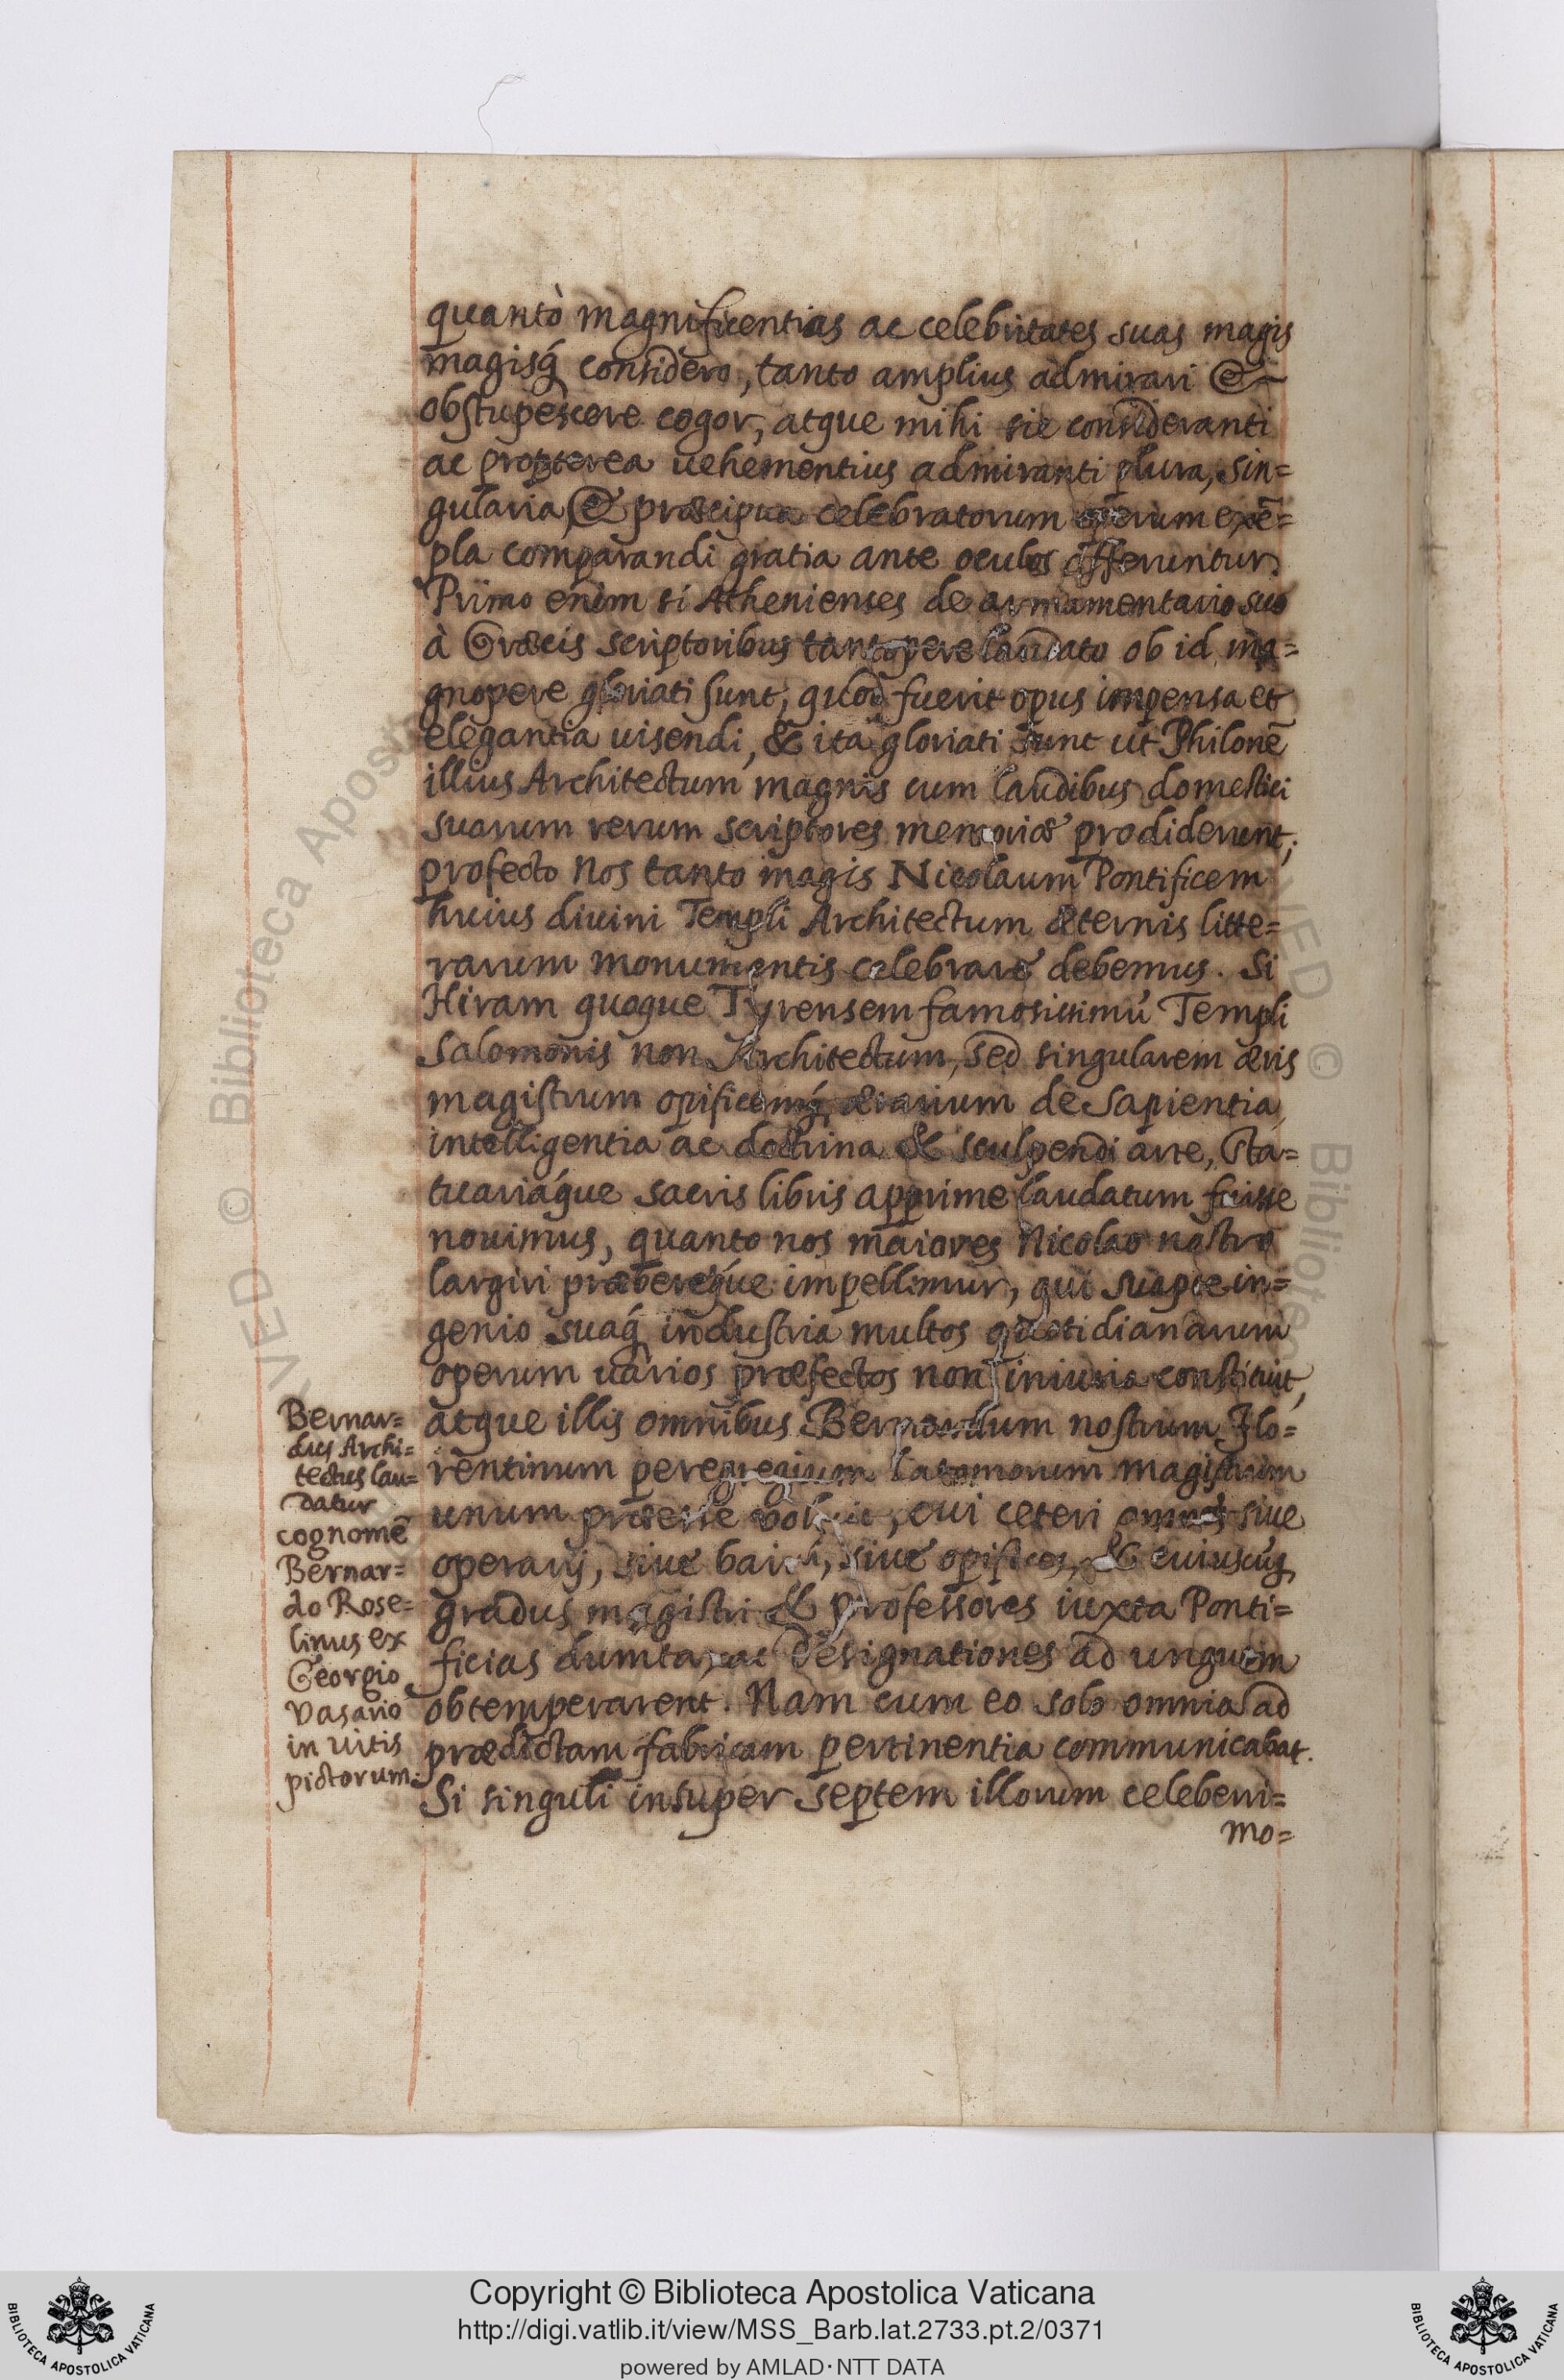 quantò magnificentias ac celebritates suas magis
magisq́ considero, tanto amplius admirari &
obstupescere cogor, atque mihi sic consideranti
ac propterea uehementius admiranti plura, sin=
gularia, & præcipua celebratorum operum exē=
pla comparandi gratia ante oculos afferuntur.
Primo enim si Athenienses de armamentario suo
à Græcis scriptoribus tantopere laudato ob id ma=
gnopere gloriati sunt, quod fuerit opus impensa et
elegantia uisendi, & ita gloriati sunt ut Philonē
illius Architectum magnis cum laudibus domestici
suarum rerum scriptores memoriæ prodiderunt;
profecto nos tanto magis Nicolaum Pontificem
huius diuini Templi Architectum æternis litte=
rarum monumentis celebrare debemus. Si
Hiram quoque Tyrensem famosissimū Templi
Salomonis non Architectum, sed singularem æris
magistrum opificemq́ ærarium de Sapientia,
intelligentia ac doctrina & sculpendi arte, sta=
tuariáque sacris libris apprime laudatum fuisse
nouimus, quanto nos maiores Nicolao nostro
largiri præberéque impellimur, qui suapte in=
genio suaq́ industria multos quotidianarum
operum uarios præfectos non iniuria constituit,
atque illis omnibus Bernardum nostrum Flo=
rentinum peregregium latomorum magistrum
unum præesse voluit, cui ceteri omnes siue
operarij, siue baiuli, siue opifices, & cuiuscuq́
gradus magistri & professores iuxta Ponti=
ficias dumtaxat designationes ad unguem
obtemperarent. Nam cum eo solo omnia ad
prædictam fabricam pertinentia communicabat.
Si singuli insuper septem illorum celeberri=
mo=
Bernar=
dus Archi=
tectus lau=
datur
cognomē
Bernar=
do Rose=
linus ex
Georgio
Vasario
in uitis
pictorum.
© Biblioteca Apostolica
VED © Biblioteca
Copyright © Biblioteca Apostolica Vaticana
http://digi.vatlib.it/view/MSS_Barb.lat.2733.pt.2/0371
powered by AMLAD·NTT DATA
BIBLIOTECA APOSTOLICA VATICANA
BIBLIOTECA APOSTOLICA VATICANA